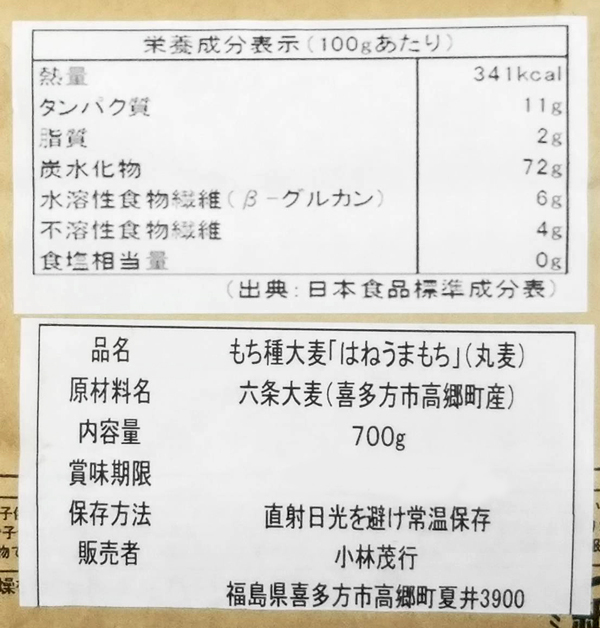 栄養成分表示(100gあたり)
熱量 341kcal
タンパク質 11g
脂質 2g
炭水化物 72g
水溶性食物繊維(β-グルカン) 6g
不溶性食物繊維 4g
食塩相当量 0g
(出典:日本食品標準成分表)
品名 もち種大麦「はねうまもち」(丸麦)
原材料名 六条大麦(喜多方市高郷町産)
内容量 700g
賞味期限
保存方法 直射日光を避け常温保存
販売者 小林茂行
福島県喜多方市高郷町夏井3900